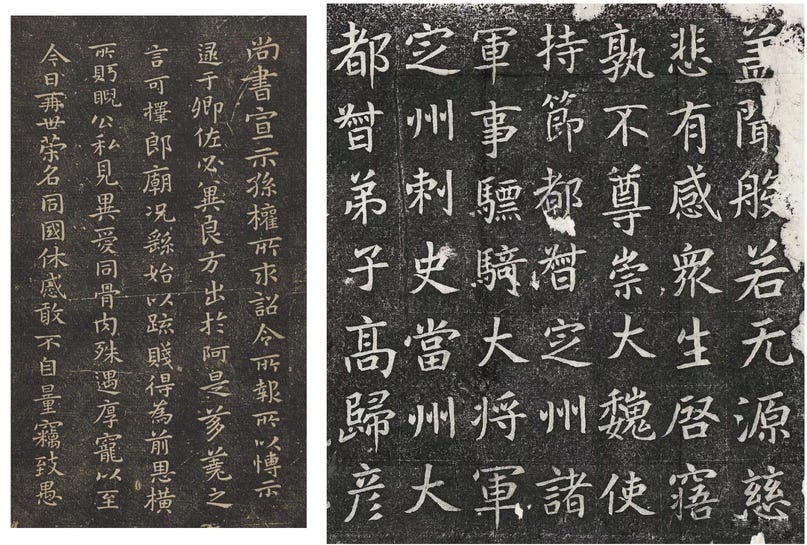 尚書宣示孫權所求詔令所報所以博示
逮于卿佐必冀良方出於阿是芻蕘之
言可擇郎廟況繇始以疏賤得為前恩橫
所眄睨公私見異愛同骨肉殊遇厚寵以至
今日再世榮名同國休慼敢不自量竊致愚
盖聞般若无源慈
悲有感衆生啓寤
孰不尊崇大魏使
持節都督定州諸
軍事驃騎大将軍
定州刺史當州大
都督弟子高歸彦